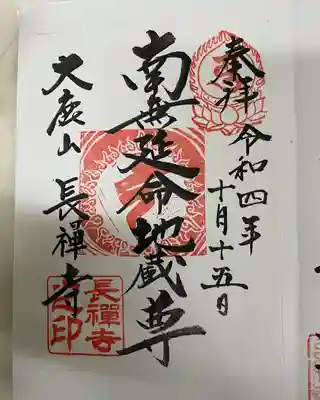 奉拝 令和四年
十月十五日
南無延命地蔵尊
大鹿山 長禪寺
長禪寺
印